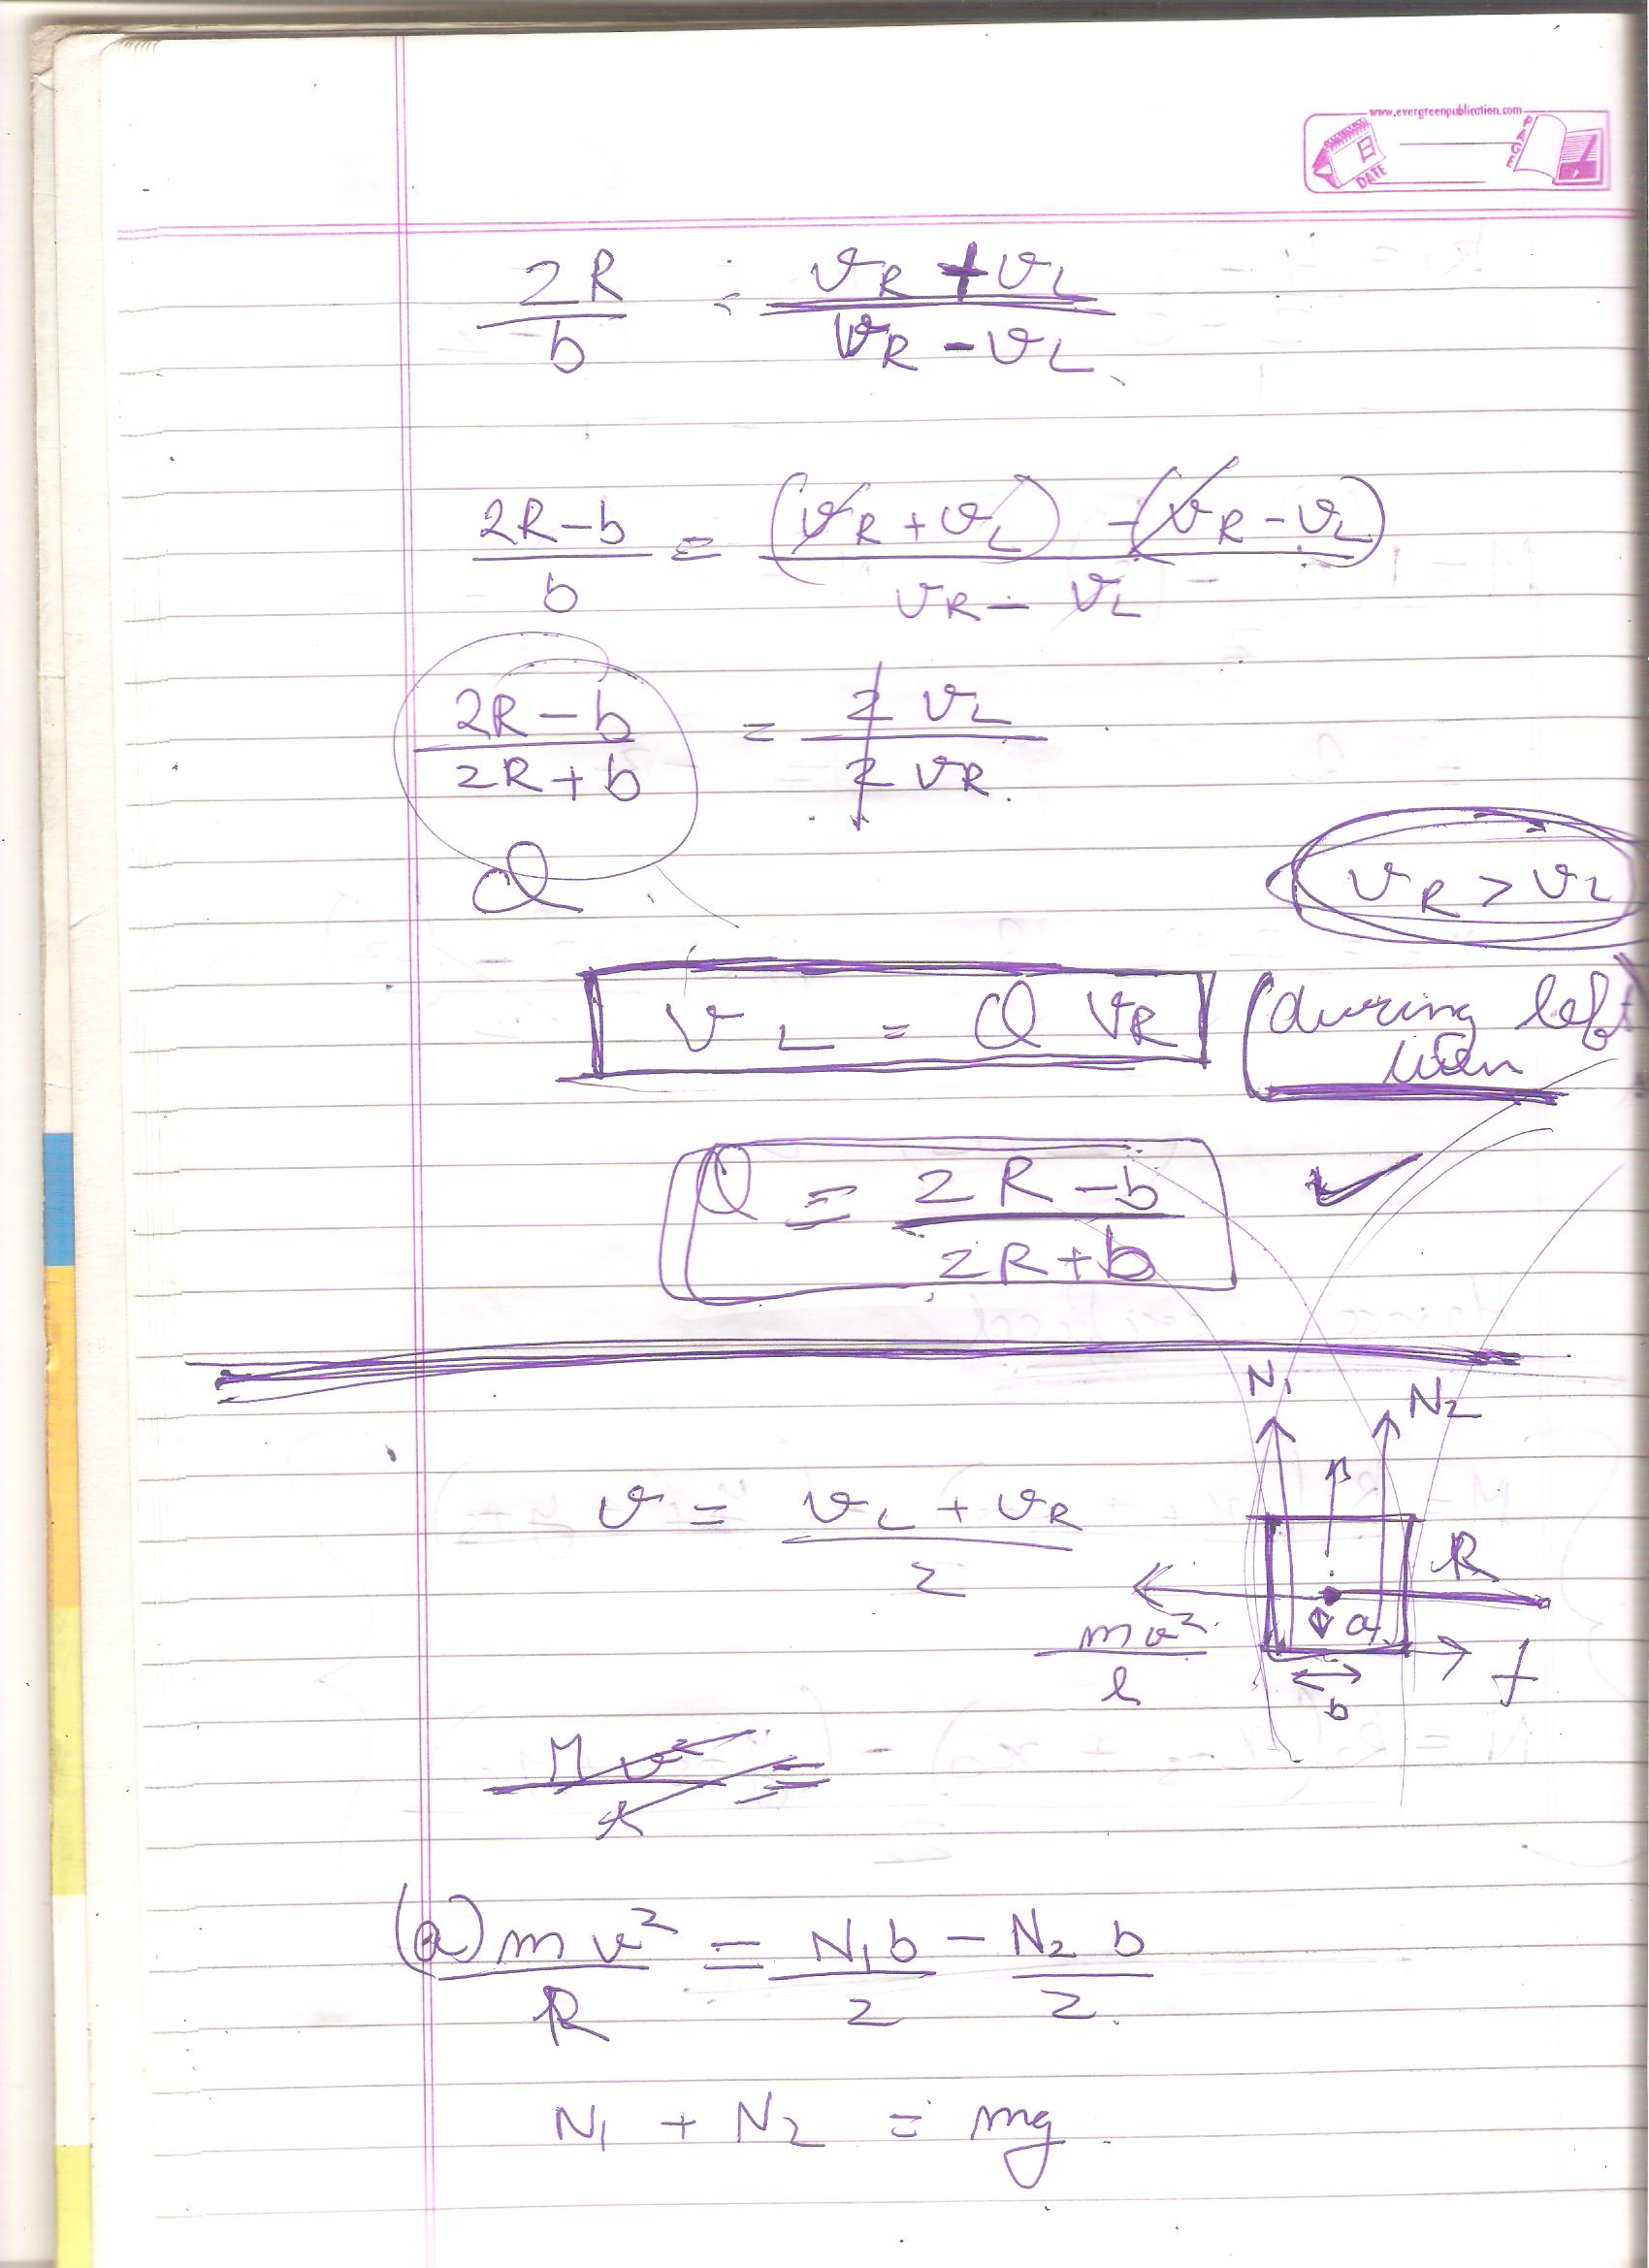 www.evergreenpublication.com
DATE
PAGE
2R/b = (vR + vL)/(vR - vL)
(2R-b)/b = ((vR + vL) - (vR - vL))/(vR - vL)
(2R-b)/(2R+b) = 2vL/2vR
Q
vR > vL
vL = Q vR (during left turn)
Q = (2R-b)/(2R+b) ✓
N1
N2
v = (vL + vR)/2
R
a
mv²/R
f
b
Mv²/R =
(a) mv²/R = N1b/2 - N2b/2
N1 + N2 = mg